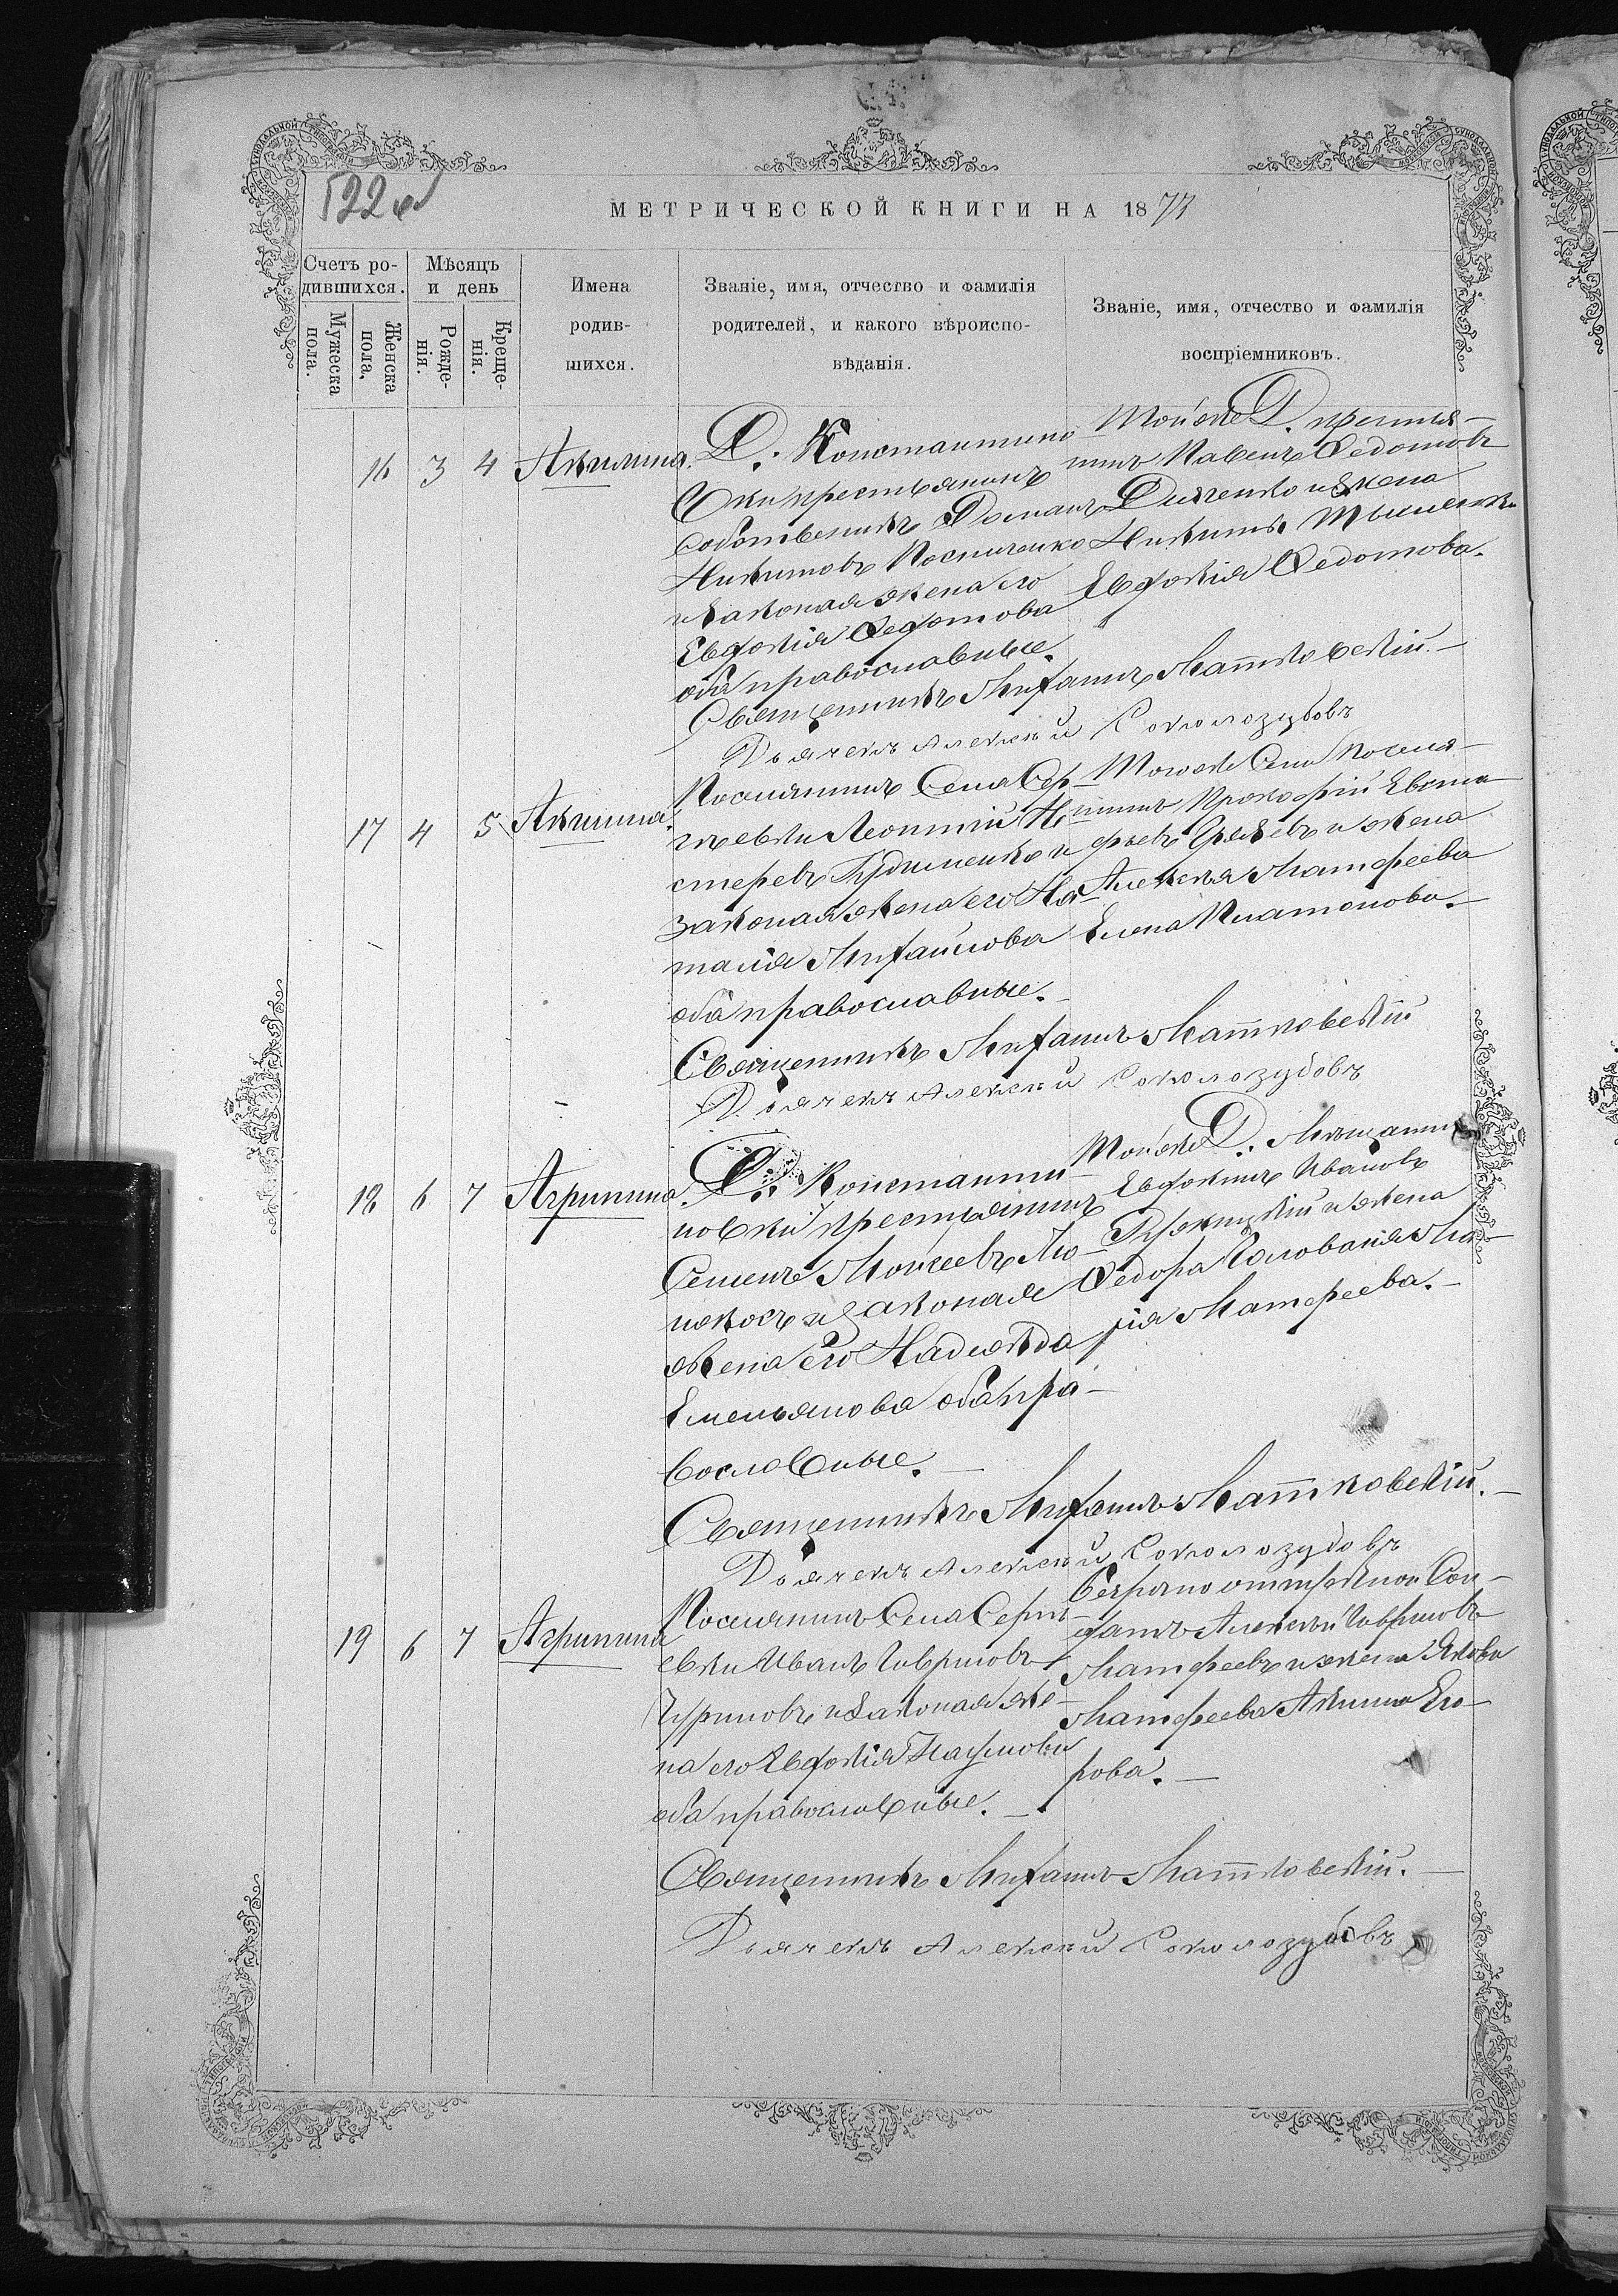 522 об
МЕТРИЧЕСКОЙ КНИГИ НА 1877
Счетъ родившихся.
Мужеска пола.
Женска пола.
Мѣсяцъ и день
Рожденія.
Крещенія.
Имена родившихся.
Званіе, имя, отчество и фамилія родителей, и какого вѣроисповѣданія.
Званіе, имя, отчество и фамилія воспріемниковъ.
16 3 4 Акилина.
Д. Константино
крестьянинъ
собственникъ Романъ
Никитовъ
и законая жена его
Евдокія Федотова
оба православные.
Той же Д. крестья-
нинъ Павелъ Федотовъ
Дяченко и жена
Никиты
Евдокія Федотова.
Священникъ Михаилъ Матковскій.
Дьячекъ Алексѣй Соколозубовъ
17 4 5 Акилина.
Поселянинъ Села Сер-
гѣевки Леонтій Не
стеровъ и
законая жена его На-
талія Михайлова
оба православные.
Того же Села поселя-
нинъ Прокофій Евста
фьевъ и жена
Алексѣя Матфеева
Елена Платонова.
Священникъ Михаилъ Матковскій
Дьячекъ Алексѣй Соколозубовъ
18 6 7 Агрипина.
Д. Константи-
новки крестьянинъ
Семенъ Моисеевъ
и законая
жена его Надежда
Емельянова оба пра-
вославные.
Той же Д. Мѣщанинъ
Евдокимъ Ивановъ
и жена
Федора Голованя Ма-
рія Матфеева.
Священникъ Михаилъ Матковскій.
Дьячекъ Алексѣй Соколозубовъ
19 6 7 Агрипина
Поселянинъ Села Сергѣ-
евки Иванъ Гавриловъ
Чуриловъ и законая же-
на его Евдокія Наумова
оба православные.
Безсрочно отпускной Сол-
датъ Алексѣй Гавриловъ
Матфеевъ и жена Якова
Матфеева Акилина Его-
рова.
Священникъ Михаилъ Матковскій.
Дьячекъ Алексѣй Соколозубовъ